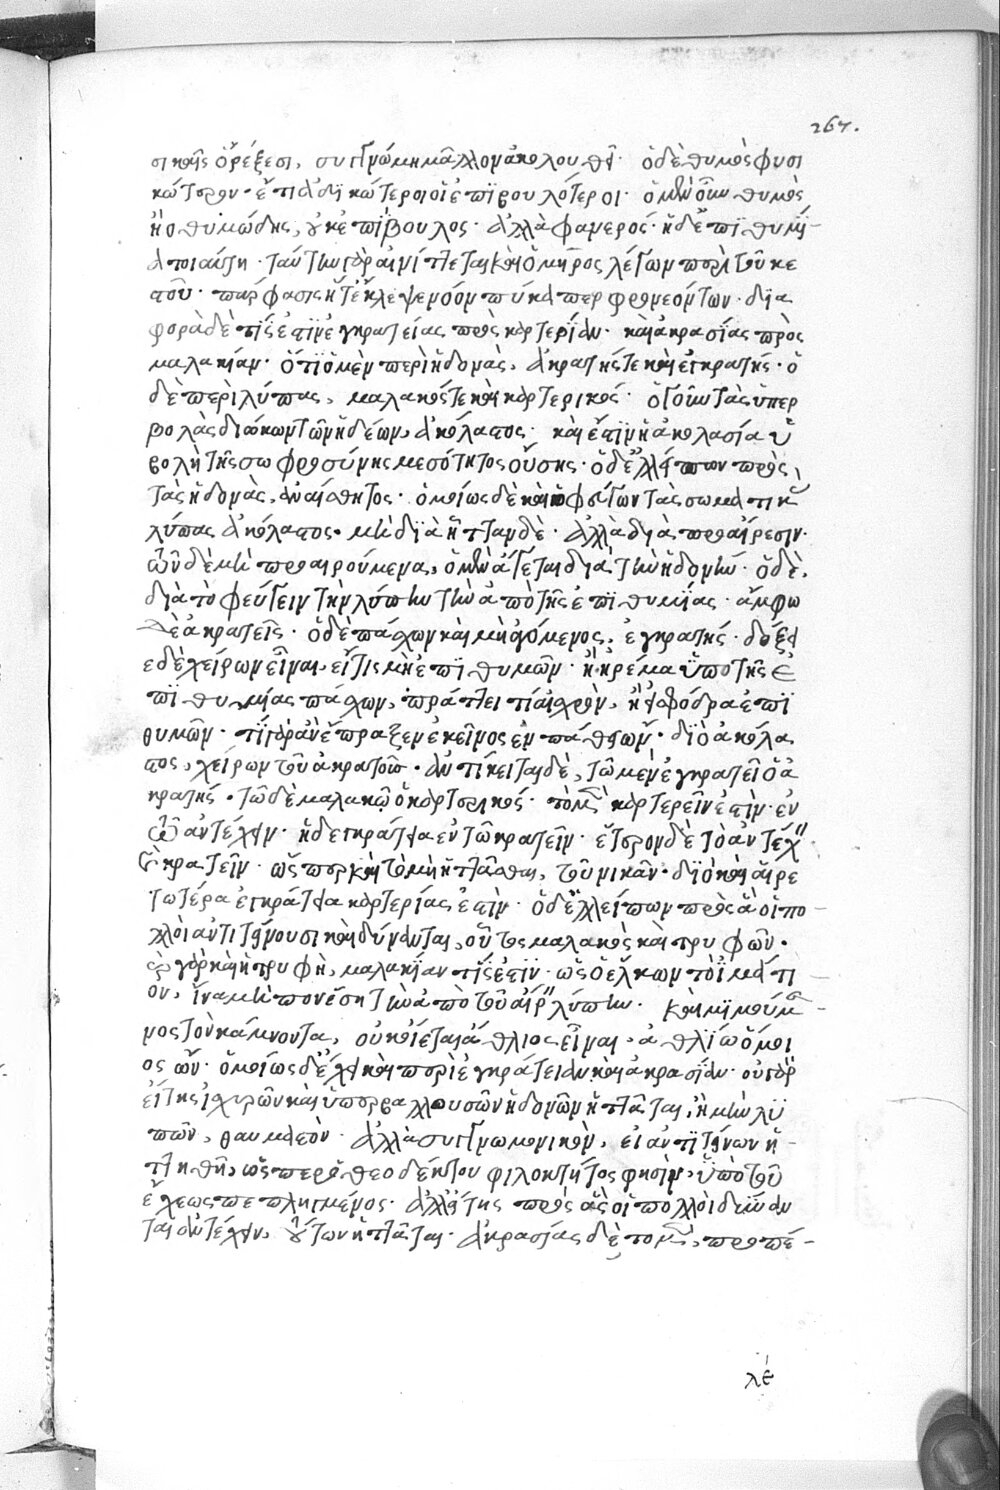 267.
σικαῖς ὀρέξεσι, συγγνώμη μᾶλλον ἀκολουθεῖ· ὁ δὲ θυμὸς φυσι
κώτερον· ἔτι ἀδικώτεροι οἱ ἐπιβουλότεροι· ὁ μὲν οὖν θυμὸς
ἢ ὁ θυμώδης, οὐκ ἐπίβουλος· ἀλλὰ φανερός· ἡ δὲ ἐπιθυμί-
α τοιαύτη· ταύτην γὰρ αἰνίττεται καὶ ὅμηρος λέγων περὶ τοῦ κε
στοῦ· πάρφασις ἥ τ' ἔκλεψε νόον πύκα περ φρονεόντων· δια
φορὰ δὲ τίς ἐστιν ἐγκρατείας πρὸς καρτερίαν· καὶ ἀκρασίας πρὸς
μαλακίαν· ὅτι ὁ μὲν περὶ ἡδονὰς, ἀκρατής τε καὶ ἐγκρατής· ὁ
δὲ περὶ λύπας, μαλακός τε καὶ καρτερικός· ὁ γοῦν τὰς ὑπερ
βολὰς διώκων τῶν ἡδέων, ἀκόλαστος· καὶ ἔστιν ἡ ἀκολασία ὑ
βολὴ τῆς σωφροσύνης μεσότητος οὔσης· ὁ δ' ἐλλείπων πρὸς
τὰς ἡδονὰς, ἀναίσθητος· ὁμοίως δὲ καὶ ὁ φεύγων τὰς σωματικ
λύπας ἀκόλαστος· μὴ διὰ ἧτταν δὲ· ἀλλὰ διὰ προαίρεσιν·
ὧν δὲ μὴ προαιρούμενα, ὁ μὲν ἄγεται διὰ τὴν ἡδονήν· ὁ δὲ,
διὰ τὸ φεύγειν τὴν λύπην τὴν ἀπὸ τῆς ἐπιθυμίας· ἄμφω
δὲ ἀκρατεῖς· ὁ δὲ πάσχων καὶ μὴ ἀγόμενος, ἐγκρατής· δόξει
ε δὲ χείρων εἶναι, εἴ τις μὴ ἐπιθυμῶν· ἢ ἠρέμα ὑπὸ τῆς ἐ
πιθυμίας πάσχων, πράττει τι αἰσχρὸν, ἢ σφόδρα ἐπι
θυμῶν· τί γὰρ ἂν ἔπραξεν ἐκεῖνος ἐν πάθει ὤν· διὸ ἀκόλα
στος, χείρων τοῦ ἀκρατοῦς· ἀντίκειται δὲ, τῷ μὲν ἐγκρατεῖ ὁ ἀ
κρατής· τῷ δὲ μαλακῷ ὁ καρτερικός· τὸ μὲν καρτερεῖν ἐστὶν· ἐν
ᾧ ἀντέχειν· ἡ δὲ ἐγκράτεια ἐν τῷ κρατεῖν· ἕτερον δὲ τὸ ἀντέχ
κρατεῖν· ὥσπερ καὶ τὸ μὴ ἡττᾶσθαι, τοῦ νικᾶν· διὸ καὶ αἱρε
τωτέρα ἐγκράτεια καρτερίας ἐστὶν· ὁ δ' ἐλλείπων πρὸς ἃ οἱ πο-
λλοὶ ἀντιτείνουσι καὶ δύνανται, οὗτος μαλακὸς καὶ τρυφῶν·
γὰρ καὶ ἡ τρυφὴ, μαλακία τίς ἐστιν· ὡς ὁ ἕλκων τὸ ἱμάτι
ον, ἵνα μὴ πονέσῃ τὴν ἀπὸ τοῦ αἴρ λύπην· καὶ μιμούμε-
νος τὸν κάμνοντα, οὐκ οἴεται ἄθλιος εἶναι, ἀθλίῳ ὅμοι
ος ὤν· ὁμοίως δ' ἔχει καὶ περὶ ἐγκράτειαν καὶ ἀκρασίαν· οὐ γὰρ
εἴ τις ἰσχυρῶν καὶ ὑπερβαλλουσῶν ἡδονῶν ἡττᾶται, ἢ μὴν λυ
πῶν, θαυμαστὸν· ἀλλὰ συγγνωμονικὸν, εἰ ἀντιτείνων ἡ-
ττηθῇ, ὥσπερ ὁ θεοδέκτου φιλοκτήτος φησὶν, ὑπὸ τοῦ
ἔχεως πεπληγμένος· ἀλλ' εἴ τις πρὸς ἃς οἱ πολλοὶ δύναν
ται ἀντέχειν, τούτων ἡττᾶται· ἀκρασίας δὲ τὸ μὲν, προπέ-
λέ